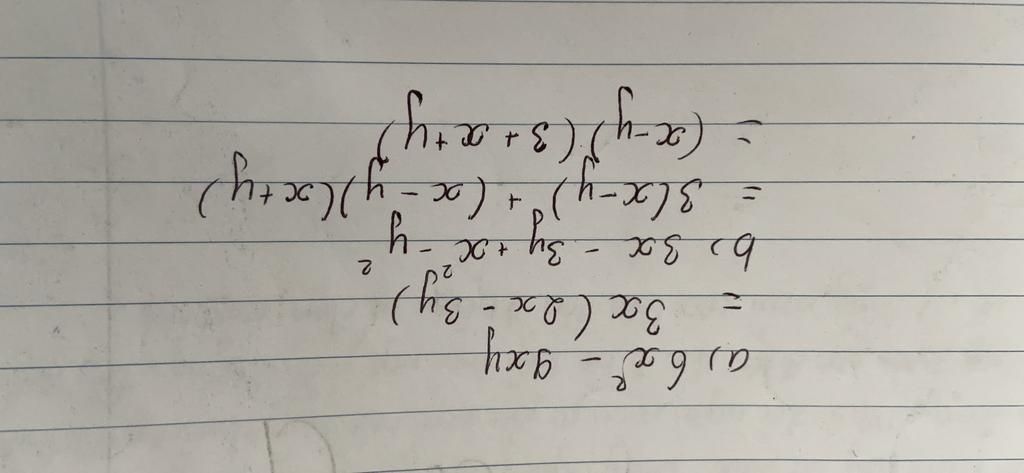 a) 6x² - 9xy
= 3x (2x - 3y)
b) 3x - 3y + x² - y²
= 3(x-y) + (x-y)(x+y)
= (x-y)(3+x+y)